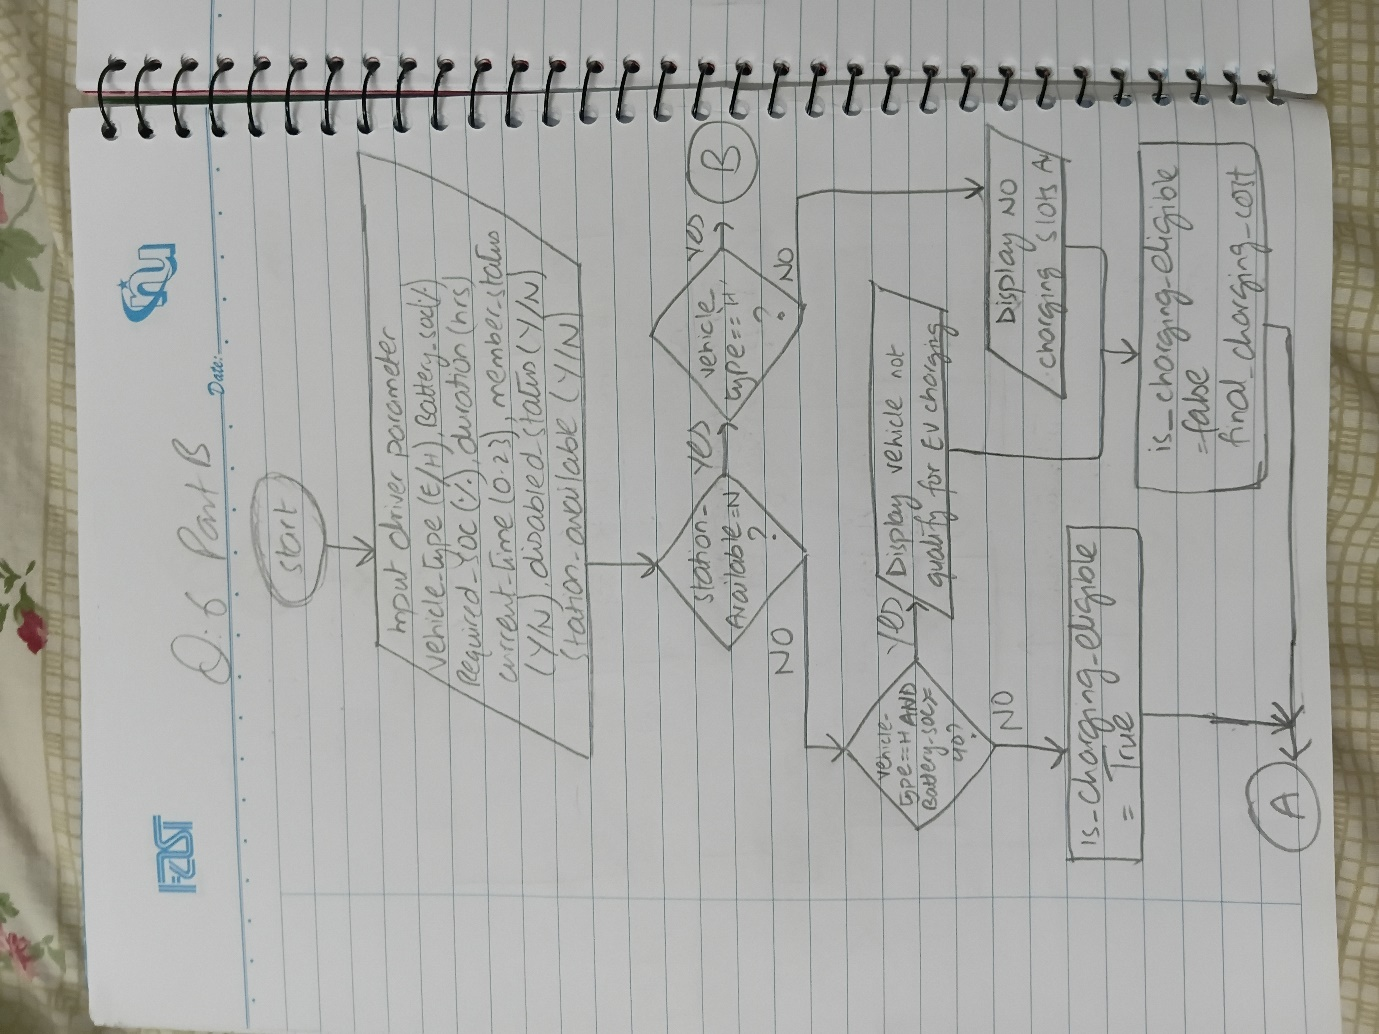 Q:6 Part B
Date:
FAST
nu
Start
Input driver parameter
vehicle_type (E/H), Battery_soc(%)
Required_soc (%), duration (hrs)
current_time (0-23), member_status
(Y/N), disabled_status (Y/N)
station_available (Y/N)
station_
Available=N
?
YES
NO
vehicle_
type == H
?
YES
NO
B
vehicle_
type==H AND
Battery_soc>
40?
YES
NO
Display vehicle not
qualify for EV charging
Display NO
charging slots Av
is_charging_eligible
= True
is_charging_eligible
=false
final_charging_cost
A